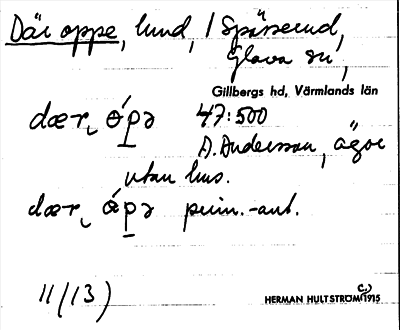 Där oppe, lund, / Spässerud,
Glava sn,
Gillbergs hd, Värmlands län
dær ˎ ópə 47:500
A. Anderson, ägor
utan hus.
dær ˎ ópə prim.-ant.
11/(13)
HERMAN HULTSTRÖM (C.) 1915